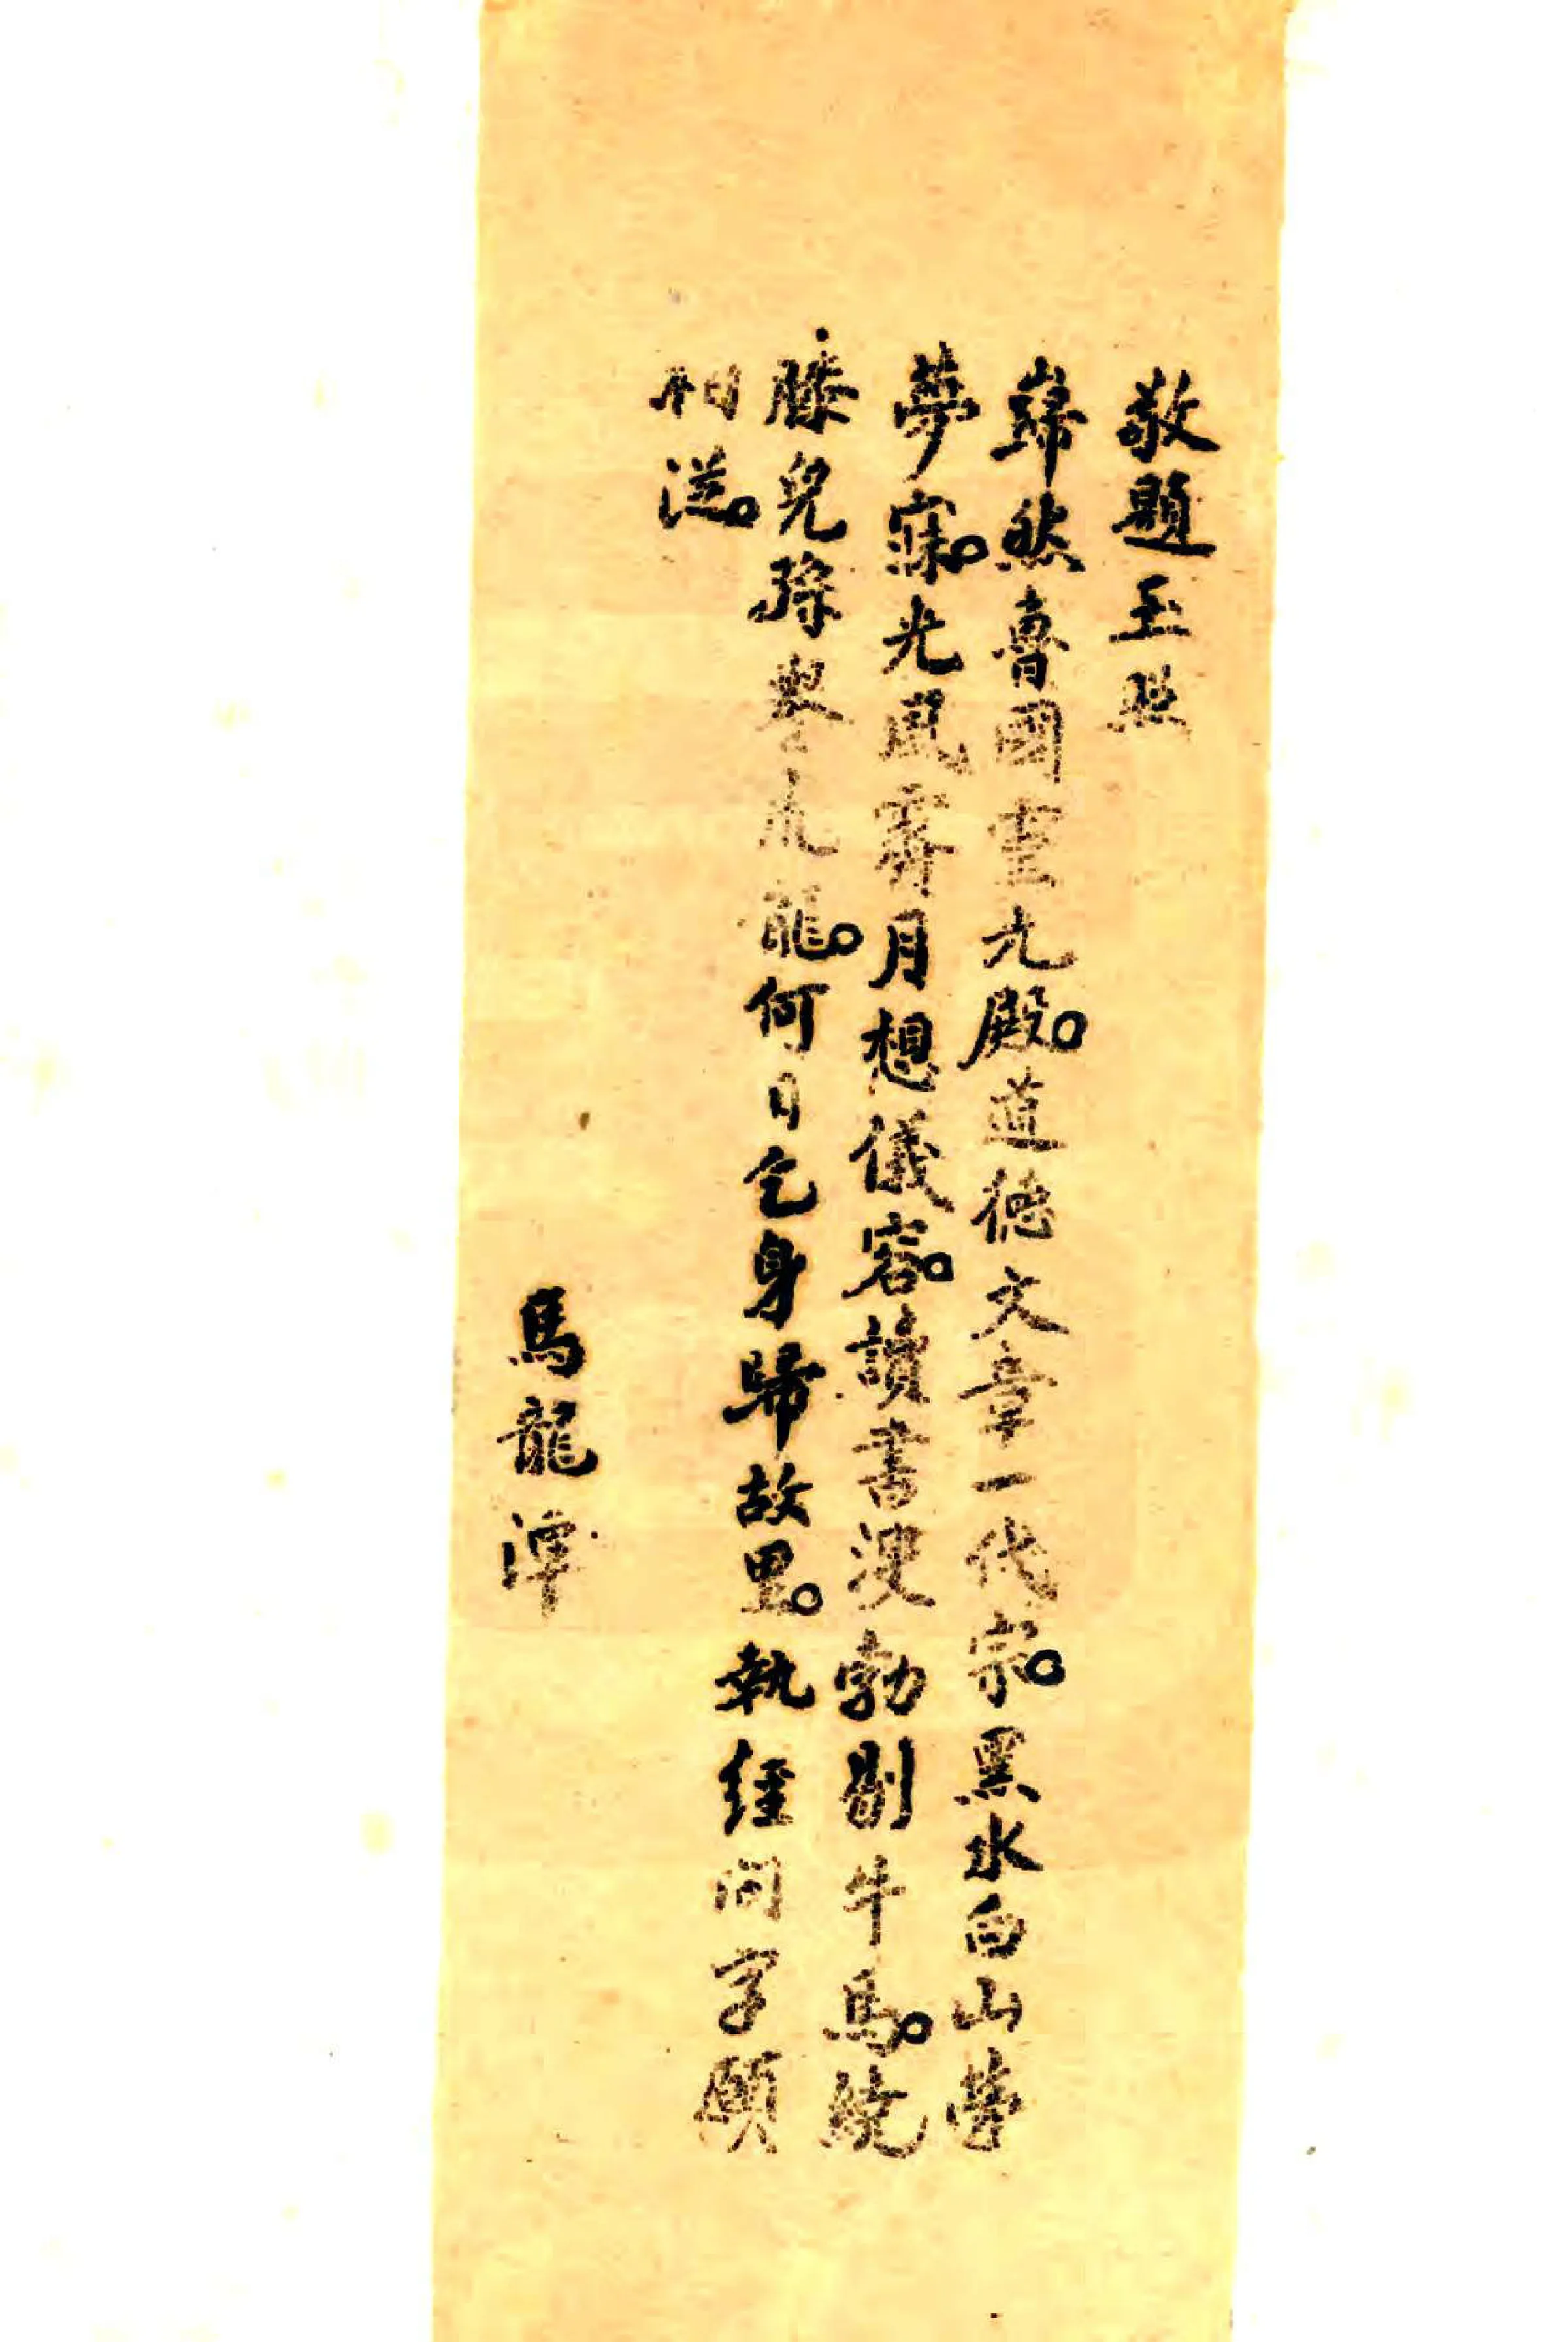 敬題玉照
巋然魯國靈光殿。道德文章一代宗。黑水白山勞
夢寐。光風霽月想儀容。讀書溲勃剔牛馬。繞
膝兒孫豢虎龍。何日乞身歸故里。執經問字願
相從。
馬龍潭